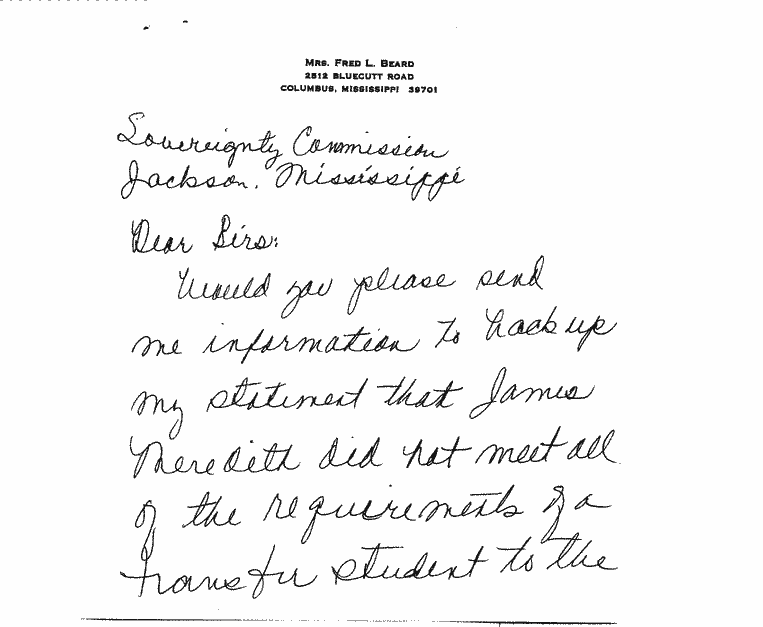 MRS. FRED L. BEARD
2512 BLUECUTT ROAD
COLUMBUS, MISSISSIPPI 39701
Sovereignty Commission
Jackson, Mississippi
Dear Sirs:
Would you please send
me information to back up
my statement that James
Meredith did not meet all
of the requirements of a
transfer student to the